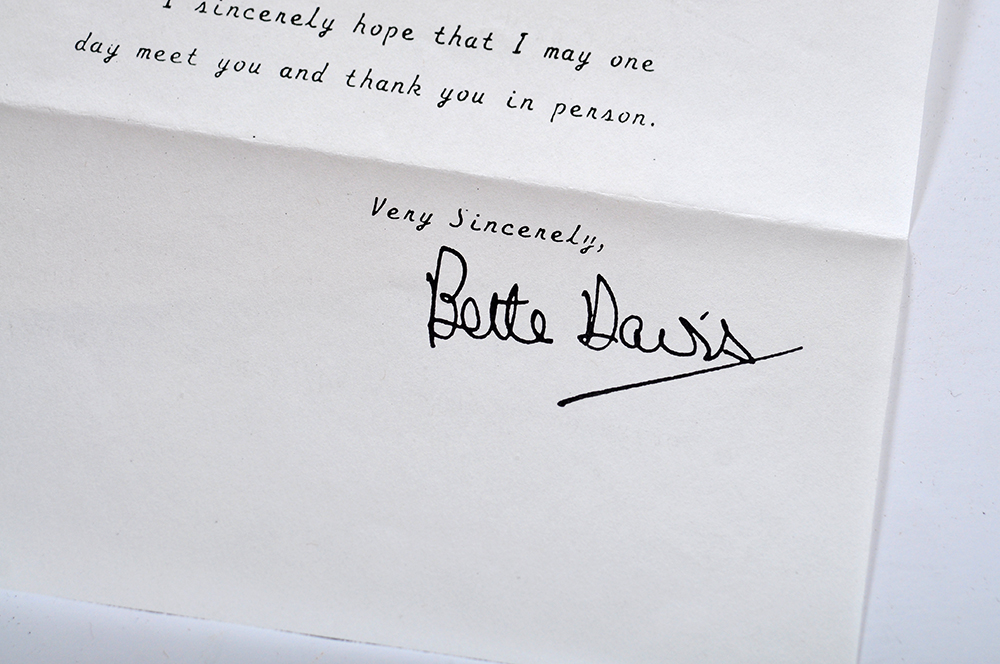 I sincerely hope that I may one
day meet you and thank you in person.
Very Sincerely,
Bette Davis